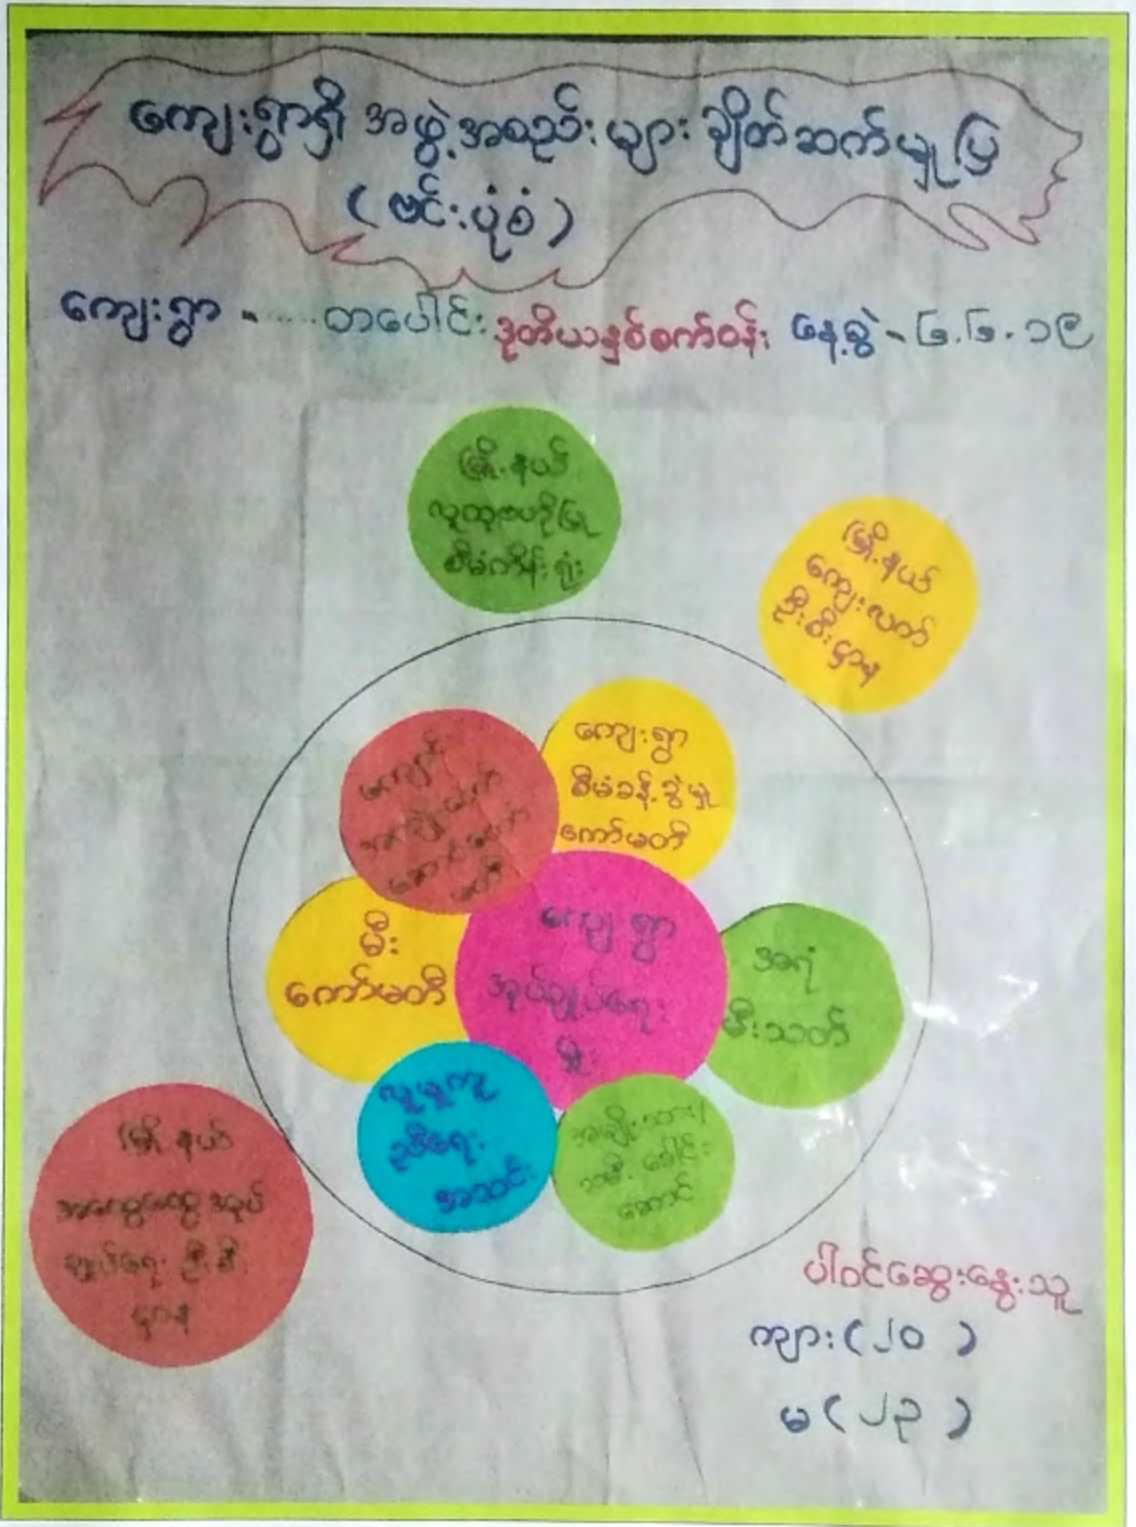 ကျေးရွာရှိ အဖွဲ့အစည်းများ ချိတ်ဆက်မှုပြ
(ဗင်းပုံစံ)
ကျေးရွာ - .... တပေါင်း ဒုတိယနှစ်စက်ဝန်း နေ့စွဲ - ၆.၆.၁၉
မြို့နယ်
လူထုဗဟိုပြု
စီမံကိန်းရုံး
မြို့နယ်
ကျေးလက်
ဦးစီးဌာန
ကျေးရွာ
စီမံခန့်ခွဲမှု
ကော်မတီ
ကျောင်း
မီး
ကော်မတီ
ကျေးရွာ
အုပ်ချုပ်ရေး
မှူး
အရံ
မီးသတ်
လူမှုကူ
ညီရေး
အသင်း
အမျိုးသား/
သမီး ခေါင်း
ဆောင်
မြို့နယ်
အထွေထွေ အုပ်
ချုပ်ရေး ဦးစီး
ဌာန
ပါဝင်ဆွေးနွေးသူ
ကျား (၂၀)
မ (၂၃)